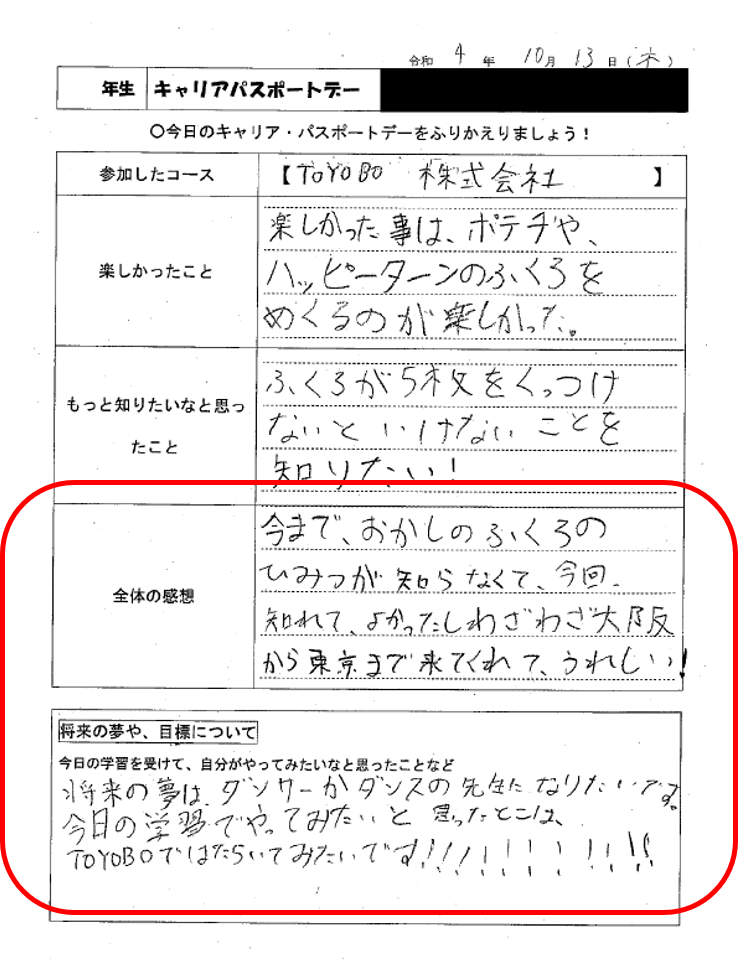 令和 4 年 10月 13日(木)
年生 キャリアパスポートデー
○今日のキャリア・パスポートデーをふりかえりましょう！
参加したコース 【TOYOBO 株式会社 】
楽しかったこと
楽しかった事は、ポテチや、
ハッピーターンのふくろを
めくるのが楽しかった。
もっと知りたいなと思っ
たこと
ふくろが5枚をくっつけ
ないといけないことを
知りたい！
全体の感想
今まで、おかしのふくろの
ひみつが知らなくて、今回、
知れて、よかったしわざわざ大阪
から東京まで来てくれて、うれしい！
将来の夢や、目標について
今日の学習を受けて、自分がやってみたいなと思ったことなど
将来の夢は、ダンサーかダンスの先生になりたいです。
今日の学習でやってみたいと思ったとこは、
TOYOBOではたらいてみたいです！！！！！！！！！！！